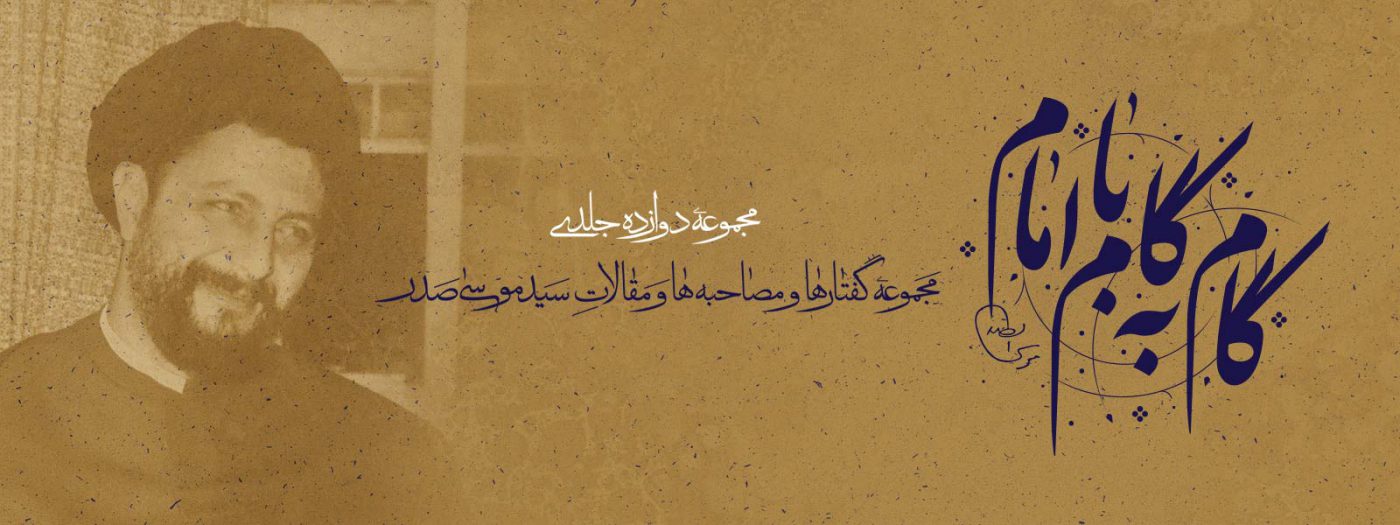 گام به گام با امام
مجموعهٔ دوازده جلدی
مجموعهٔ گفتارها و مصاحبه‌ها و مقالاتِ سید موسی صدر